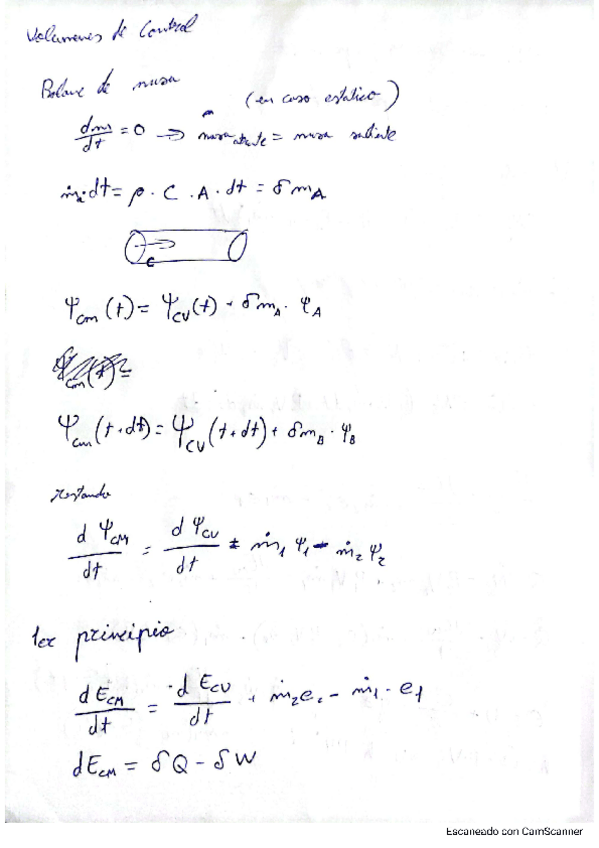 Volumenes de Control
Balance de masa
(en caso estatico)
dm/dt = 0 → masa entrante = masa saliente
ṁ·dt = ρ · C · A · dt = δmA
C
Ψcm(t) = ΨCV(t) + δmA · φA
Ψcm(t) =
Ψcm(t+dt) = ΨCV(t+dt) + δmB · φB
restando
dΨCM/dt = dΨCV/dt ± ṁ1 φ1 - ṁ2 φ2
1er principio
dECM/dt = dECV/dt + ṁ2e - ṁ1 · e1
dECM = δQ - δW
Escaneado con CamScanner